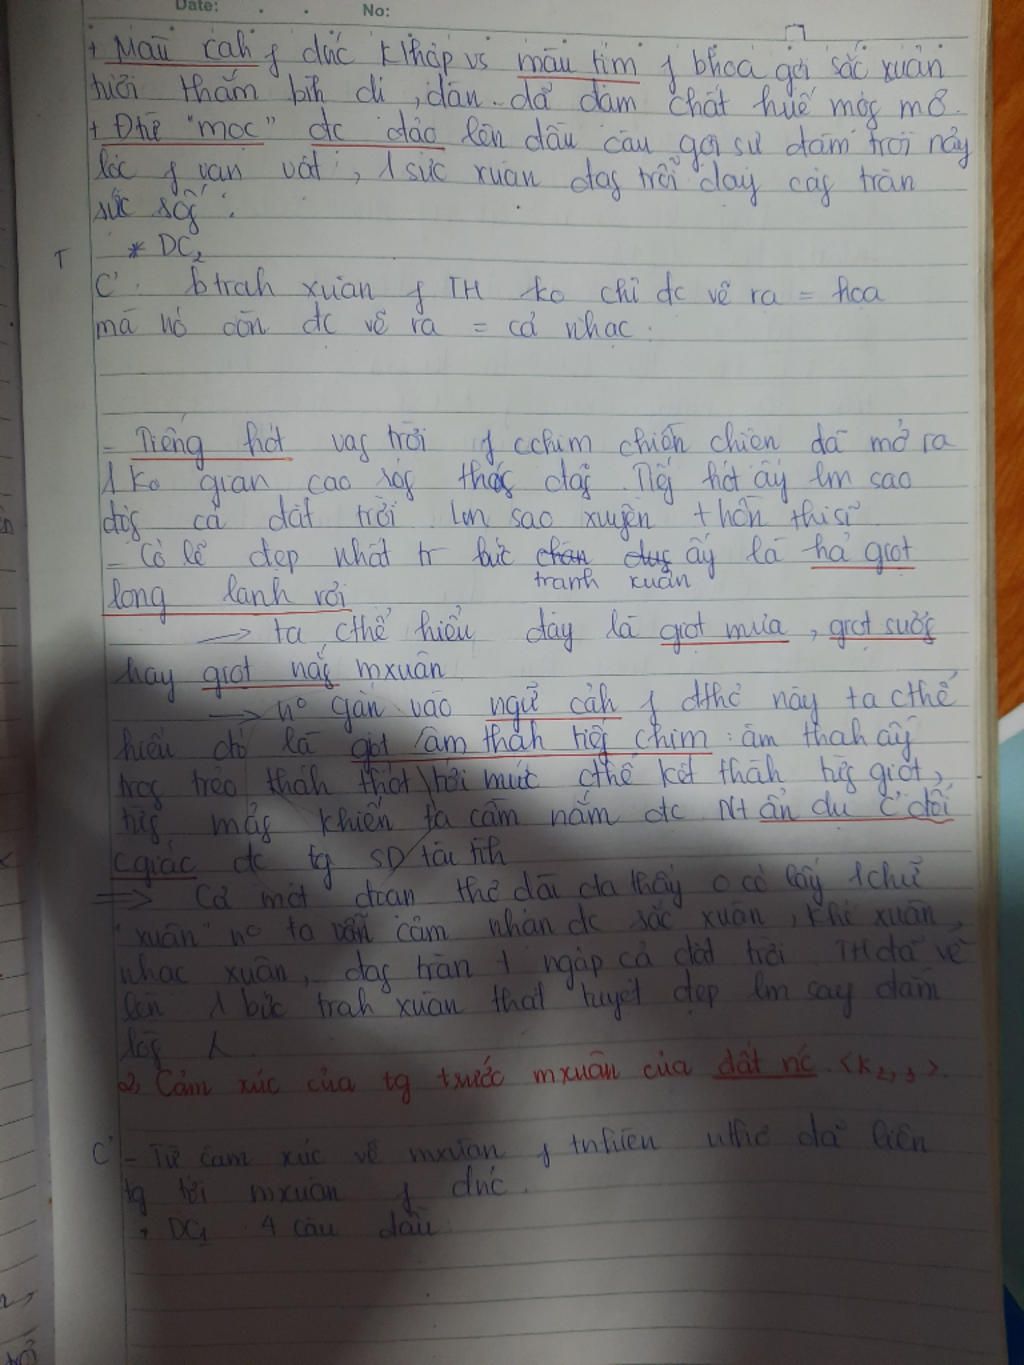 Date: . . No:
+ Màu xah of đnc k'hợp vs màu tím of bhoa gợi sắc xuân
tươi thắm bìh dị, dân dã đậm chất huế mộg mơ.
+ Đtừ "mọc" đc đảo lên đầu câu gợi sự đâm trồi nảy
lộc of vạn vật, 1 sức xuân đag trỗi dậy căg tràn
sức sốg.
* DC2
C' btrah xuân of TH ko chỉ đc vẽ ra = họa
mà nó còn đc vẽ ra = cả nhạc.
- Tiếng hót vag trời of cchim chiền chiện đã mở ra
1 ko gian cao rộg thoág đãg. Tiếg hót ấy lm sao
độg cả đất trời lm sao xuyến thồn thi sĩ
- Có lẽ đẹp nhất tr bức ấy là hả giọt
tranh xuân
long lanh rơi
→ ta cthể hiểu đây là giọt mưa, giọt suốg
hay giọt nắg mxuân
→ nº gắn vào ngữ cảh of đthơ này ta cthể
hiểu đó là giọt âm thah tiếg chim: âm thah ấy
trog trẻo thánh thót tới mức cthể kết thàh từg giọt,
từg mảg khiến ta cầm nắm đc. Nt ẩn dụ C' đổi
cgiác đc tg SD tài tìh
⇒ Cả một đoạn thơ dài cta thấy 0 có lấy 1 chữ
"xuân" nº ta vẫn cảm nhận đc sắc xuân, khí xuân,
nhạc xuân, đag tràn ngập cả đất trời. TH đã vẽ
lên 1 bức trah xuân thật tuyệt đẹp lm say đắm
lòg
2, Cảm xúc của tg trước mxuân của đất nc. <K2,3>
C' - Từ cảm xúc về mxuân of tnhiên nthơ đã liên
tg tới mxuân of đnc.
+ DC1 4 câu đầu